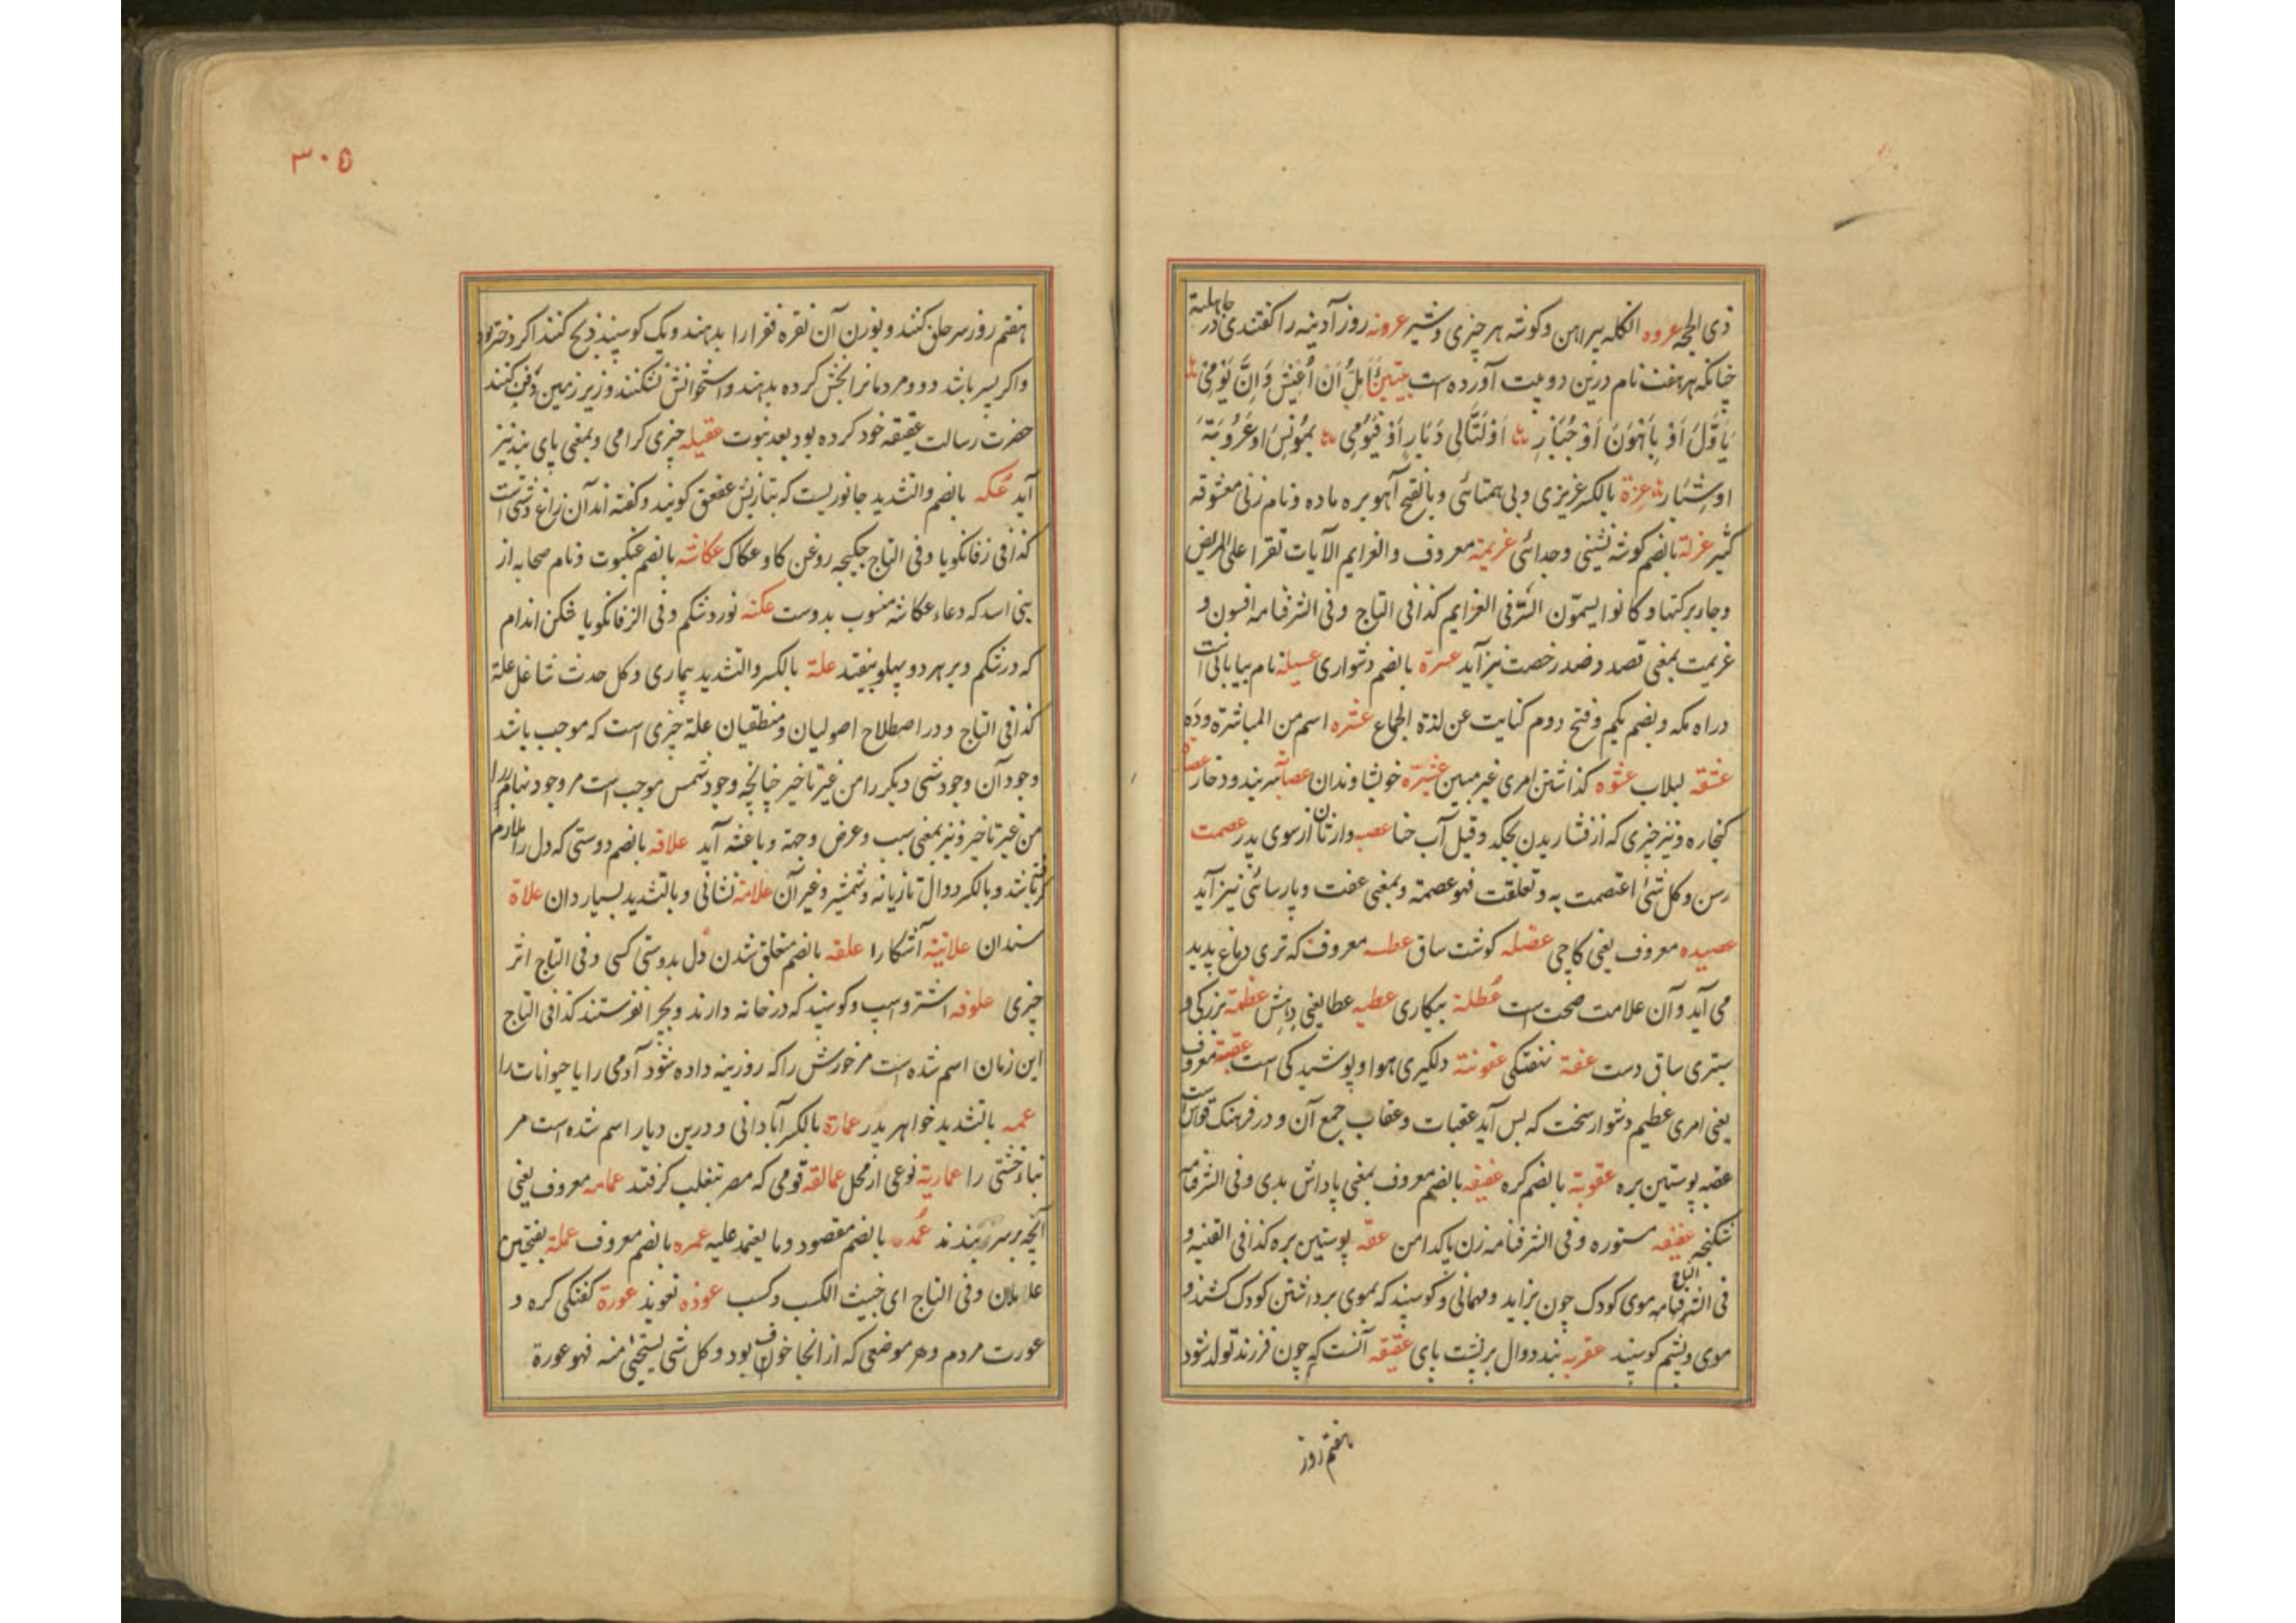 ذی الحجه عروه انگله پیراهن و کوشه هر چیزی و شیر عروبه روز آدینه را کفتندی در جاهلیة
چنانکه هر هفت نام درین دو بیت آورده است بیتین أُمِلُّ اَنْ اُعِیْشَ وَاِنَّ یَوْمِیْ
بِاَوَّلَ اَوْ بِاَهْوَنَ اَوْ جُبَارِ اَوْ لتَّالِی دُبَارِ اَوْ فَیَوْمِی بمُوْنِسَ اَوْ عَرُوْبَةَ
اوشِیَار عزة بالکسر عزیزی و بی همتائی و بالفتح آهو بره ماده و نام زنی معشوقه
کثیر عزلة بالضم کوشه نشینی و جدائی عزیمة معروف و العزایم الآیات تقرا علی المریض
و جاء برکتها و کانوا یسمّون فی العزایم کذا فی التاج و فی الشرفنامه افسون و
عزیمت بمعنی قصد و ضد رخصت نیز آید عسرة بالضم دشواری عسیله نام بیابانی است
در راه مکه و بضم یکم و فتح دوم کنایت عن لذة الجماع عشره اسم من المباشرة و ده
عشقه لبلاب عشوه کذاشتن امری غیر مبین عشیره خویشاوندان عصابه سر بند و دخار
کنجاره و نیز چیزی که از فشاریدن بچکد و قیل آب حنا عصبه وارثان از سوی پدر عصمت
رسن و کل شئ اعتصمت به و تعلقت فهو عصمة و بمعنی عفت و پارسائی نیز آید
عصیده معروف یعنی کاچی عضله کوشت ساق عطسه معروف که تری دماغ پدید
می آید و آن علامت صحت است عُطلة بیکاری عطیه عطا یعنی دهش عظمة بزرکی و
سبتری ساق دست عفة نهفتکی عفونة دلکیری هوا و پوشیدکی است عقبة معروف
یعنی امری عظیم و دشوار سخت که پس آید عقبات و عقاب جمع آن و در فرهنک قواس است
عقبه پوستین بره عقوبة بالضم کره عفیفه بالضم معروف بمعنی پاداش بدی و فی الشرفنامه
شکنجه عفیفه مستوره و فی الشرفنامه زن پاکدامن عقّه پوستین بره کذا فی القنیه و
فی التاج الشرفنامه موی کودک چون بزاید و مهمانی و کوسپند که بموی برداشتن کودک کشند و
موی و پشم کوسپند عقربه بند دوال بر پشت پای عقیقه آنست که چون فرزند تولد شود
هفتم روز
۳۰۵
هفتم روز سر حلق کنند و بوزن آن نقره فقرا را بدهند و یک کوسپند ذبح کنند اکر دختر بود
و اکر پسر باشد دو و مردمانرا بخش کرده بدهند و استخوانش نشکنند و زیر زمین دفن کنند
حضرت رسالت عقیقه خود کرده بود بعد نبوت عقیله چیزی کرامی و بمعنی پای بند نیز
آید عُکه بالضم و التشدید جانوریست که بتازیش عقعق کویند و کفته اند آن زاغ دشتی است
کذا فی زفانکویا و فی التاج چکیچه روغن کاو عکاک عکاشه بالضم عنکبوت و نام صحابه از
بنی اسد که دعاء عکاشه منسوب بدوست عکنه نورد شکم و فی الزفانکویا شکن اندام
که در شکم و بر هر دو پهلو بیفتد علة بالکسر و التشدید بیماری و کل حدث شاغل علة
کذا فی التاج و در اصطلاح اصولیان و منطقیان علة چیزی است که موجب باشد
وجود آن وجود شی دیکر را من غیر تاخیر چنانچه وجود شمس موجب است مر وجود نهار را
من غیر تاخیر و نیز بمعنی سبب و عرض و جهة و باعثه آید علاقه بالضم دوستی که دل را لازم
کرفته باشد و بالکسر دوال تازیانه و شمشیر و غیر آن علامة نشانی و بالتشدید بسیار دان علاة
سندان علانیة آشکارا علقه بالضم متعلق شدن دل بدوستی کسی و فی التاج اثر
چیزی علوفه اشتر و اسپ و کوسپند که در خانه دارند و بچرا نفرستند کذا فی التاج
این زمان اسم شده است مر خورش را که روزینه داده شود آدمی را یا حیوانات را
عمه بالتشدید خواهر پدر عمارة بالکسر آبادانی و درین دیار اسم شده است مر
بناء خشتی را عماریة نوعی از محمل عمالقه قومی که مصر بتغلب کرفتند عمامه معروف یعنی
آنچه بر سر بندند عُمده بالضم مقصود و ما یعتمد علیه عمره بالضم معروف عملة بفتحتین
عاملان و فی التاج ای خبیث الکسب و کسب عوذه تعویذ عورة کفتکی کره و
عورت مردم و هر موضعی که از آنجا خوف بود و کل شی یستحیی منه فهو عورة